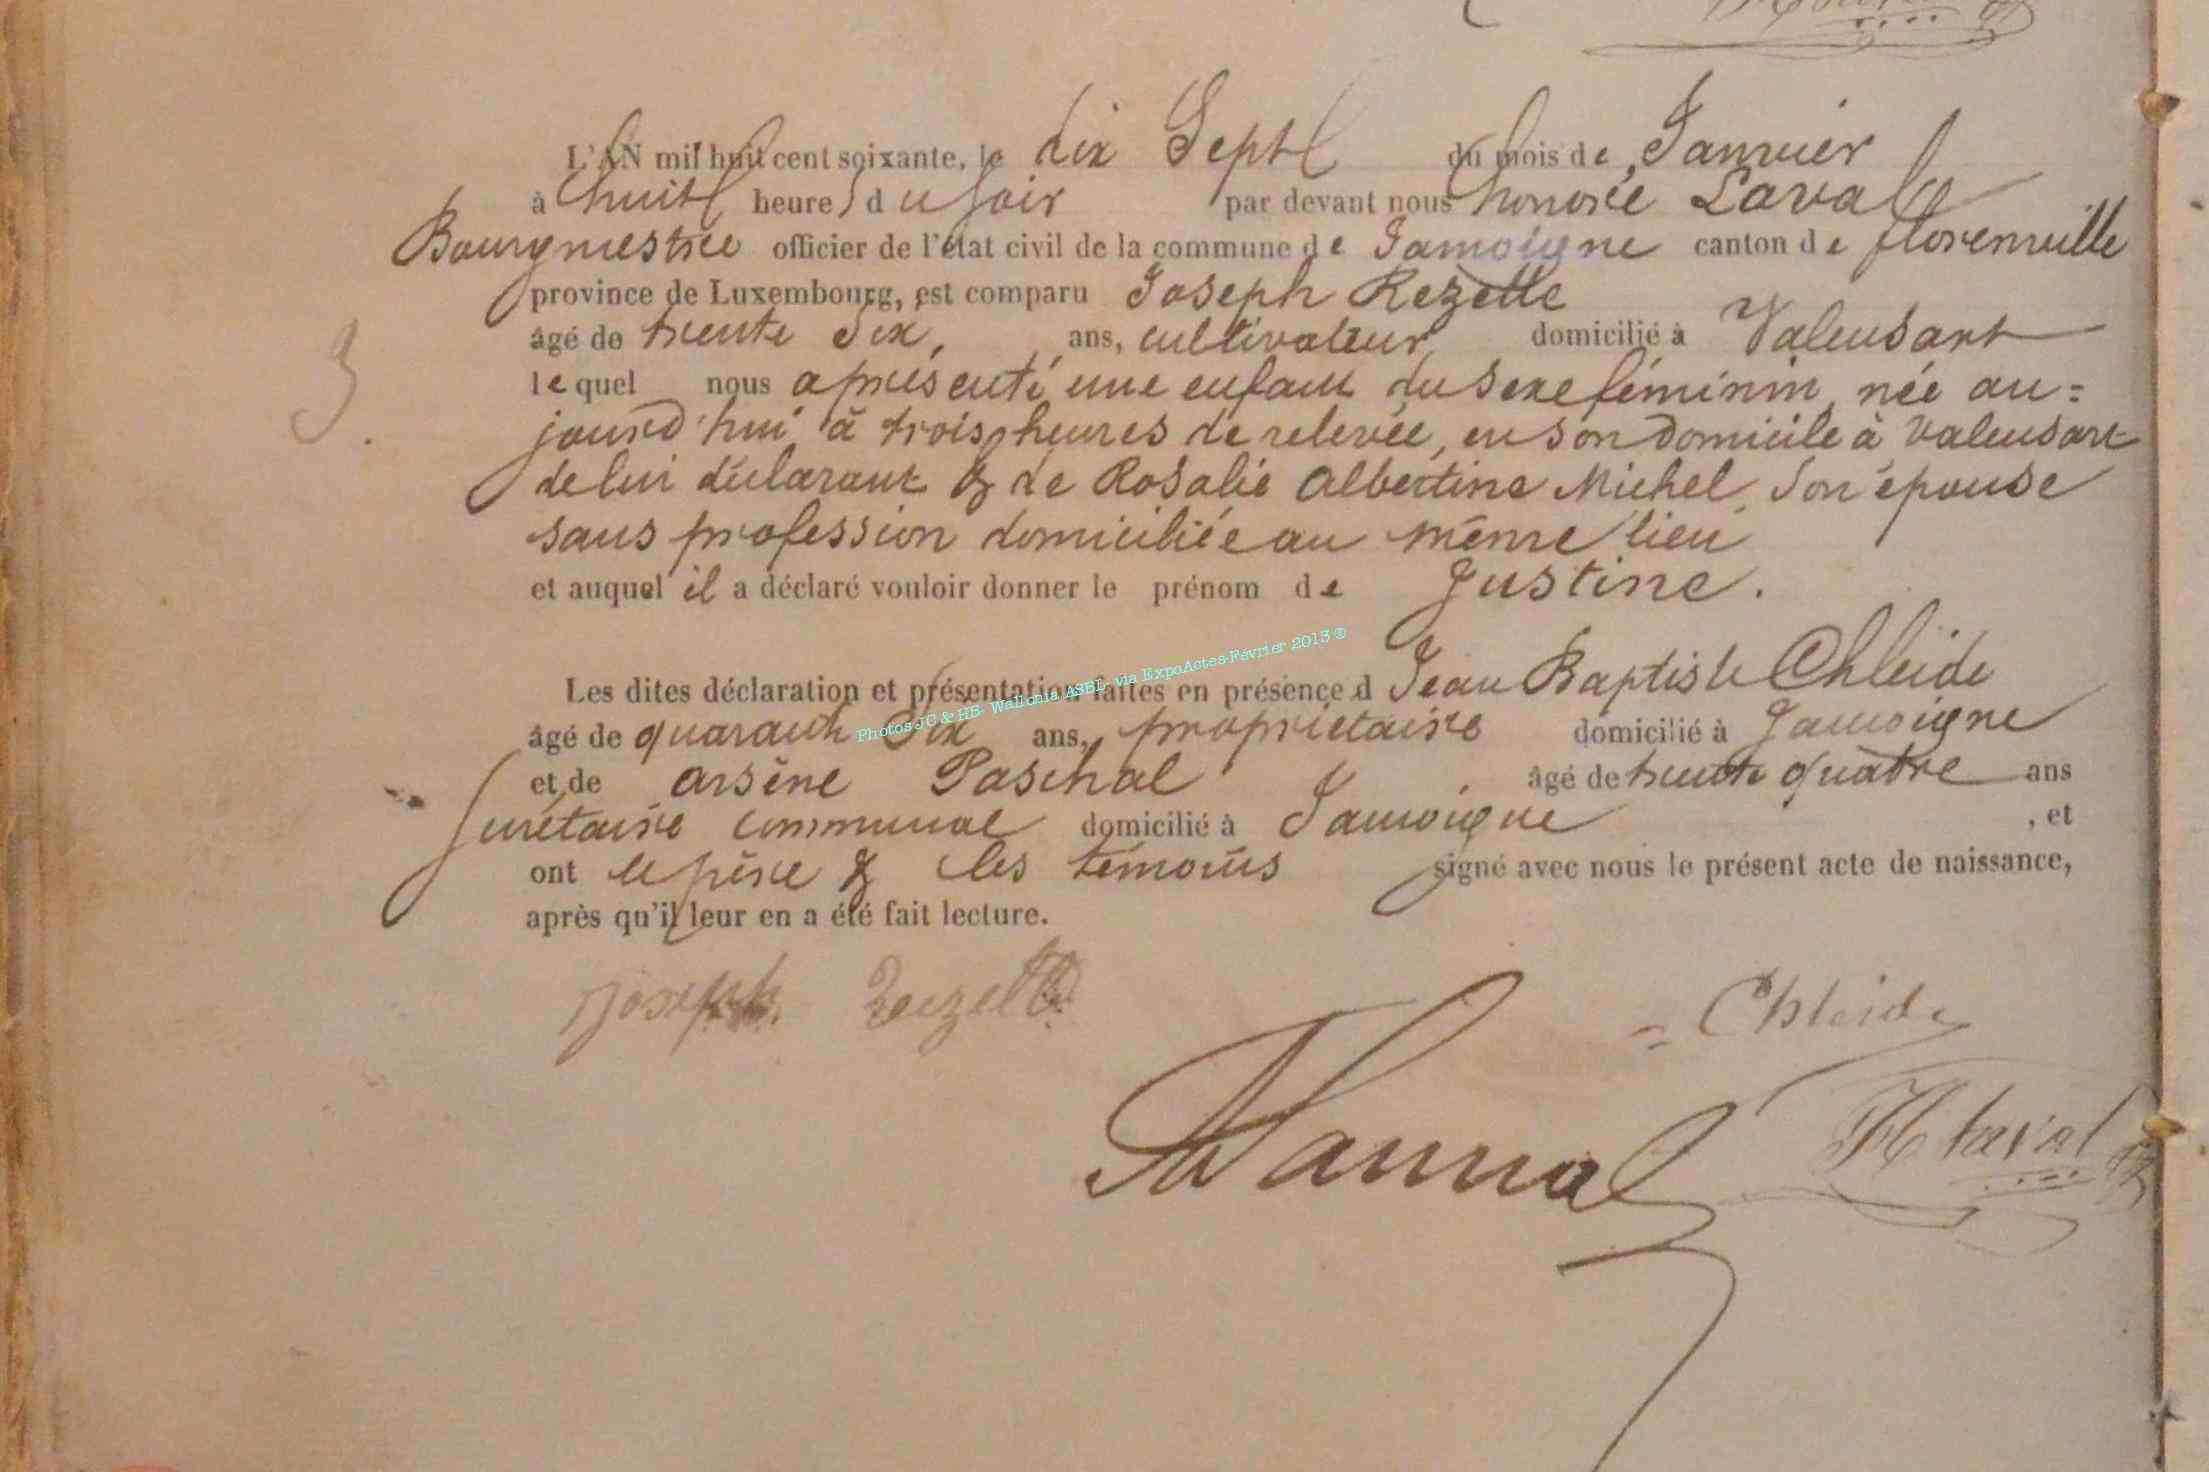 L'AN mil huit cent soixante, le dix Sept du mois de Janvier
à huit heures du soir par devant nous honoré Laval
Bourgmestre officier de l'état civil de la commune de Jamoigne canton de florenville
province de Luxembourg, est comparu Joseph Rezette
âgé de trente Six, ans, cultivateur, domicilié à Valensart
lequel nous a présenté une enfant du sexe féminin, née au=
3.
jourd'hui à trois heures de relevée, en son domicile à Valensart
de lui déclarant & de Rosalie Albertine Michel, Son épouse
sans profession domiciliée au même lieu
et auquel il a déclaré vouloir donner le prénom de Justine.
Les dites déclaration et présentation faites en présence d Jean Baptiste Chleide
Photos JC & HB- Wallonia ASBL- via ExpoActes-Février 2013 ®
âgé de quarante Six ans, propriétaire domicilié à Jamoigne
et de arsène Paschal âgé de trente quatre ans
Secrétaire communal domicilié à Jamoigne , et
ont le père & les témoins signé avec nous le présent acte de naissance,
après qu'il leur en a été fait lecture.
joseph rezette
Chleide
H Laval